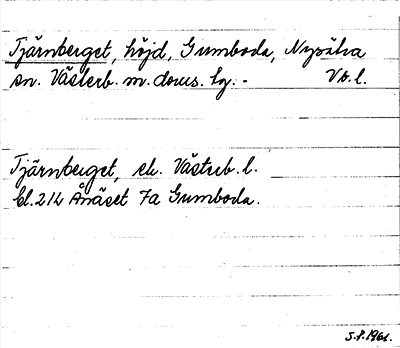 Tjärnberget, höjd, Gumboda, Nysätra
sn. Västerb. m. doms. lg. - Vb. l.
Tjärnberget, ek. Västerb. l.
bl. 214 Ånäset 7a Gumboda.
5.8.1961.